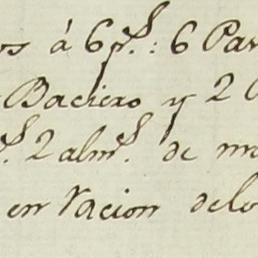 os á 6 p.s: 6 Par
Baciero y 2
s. 2 alm.s de m
en racion delo